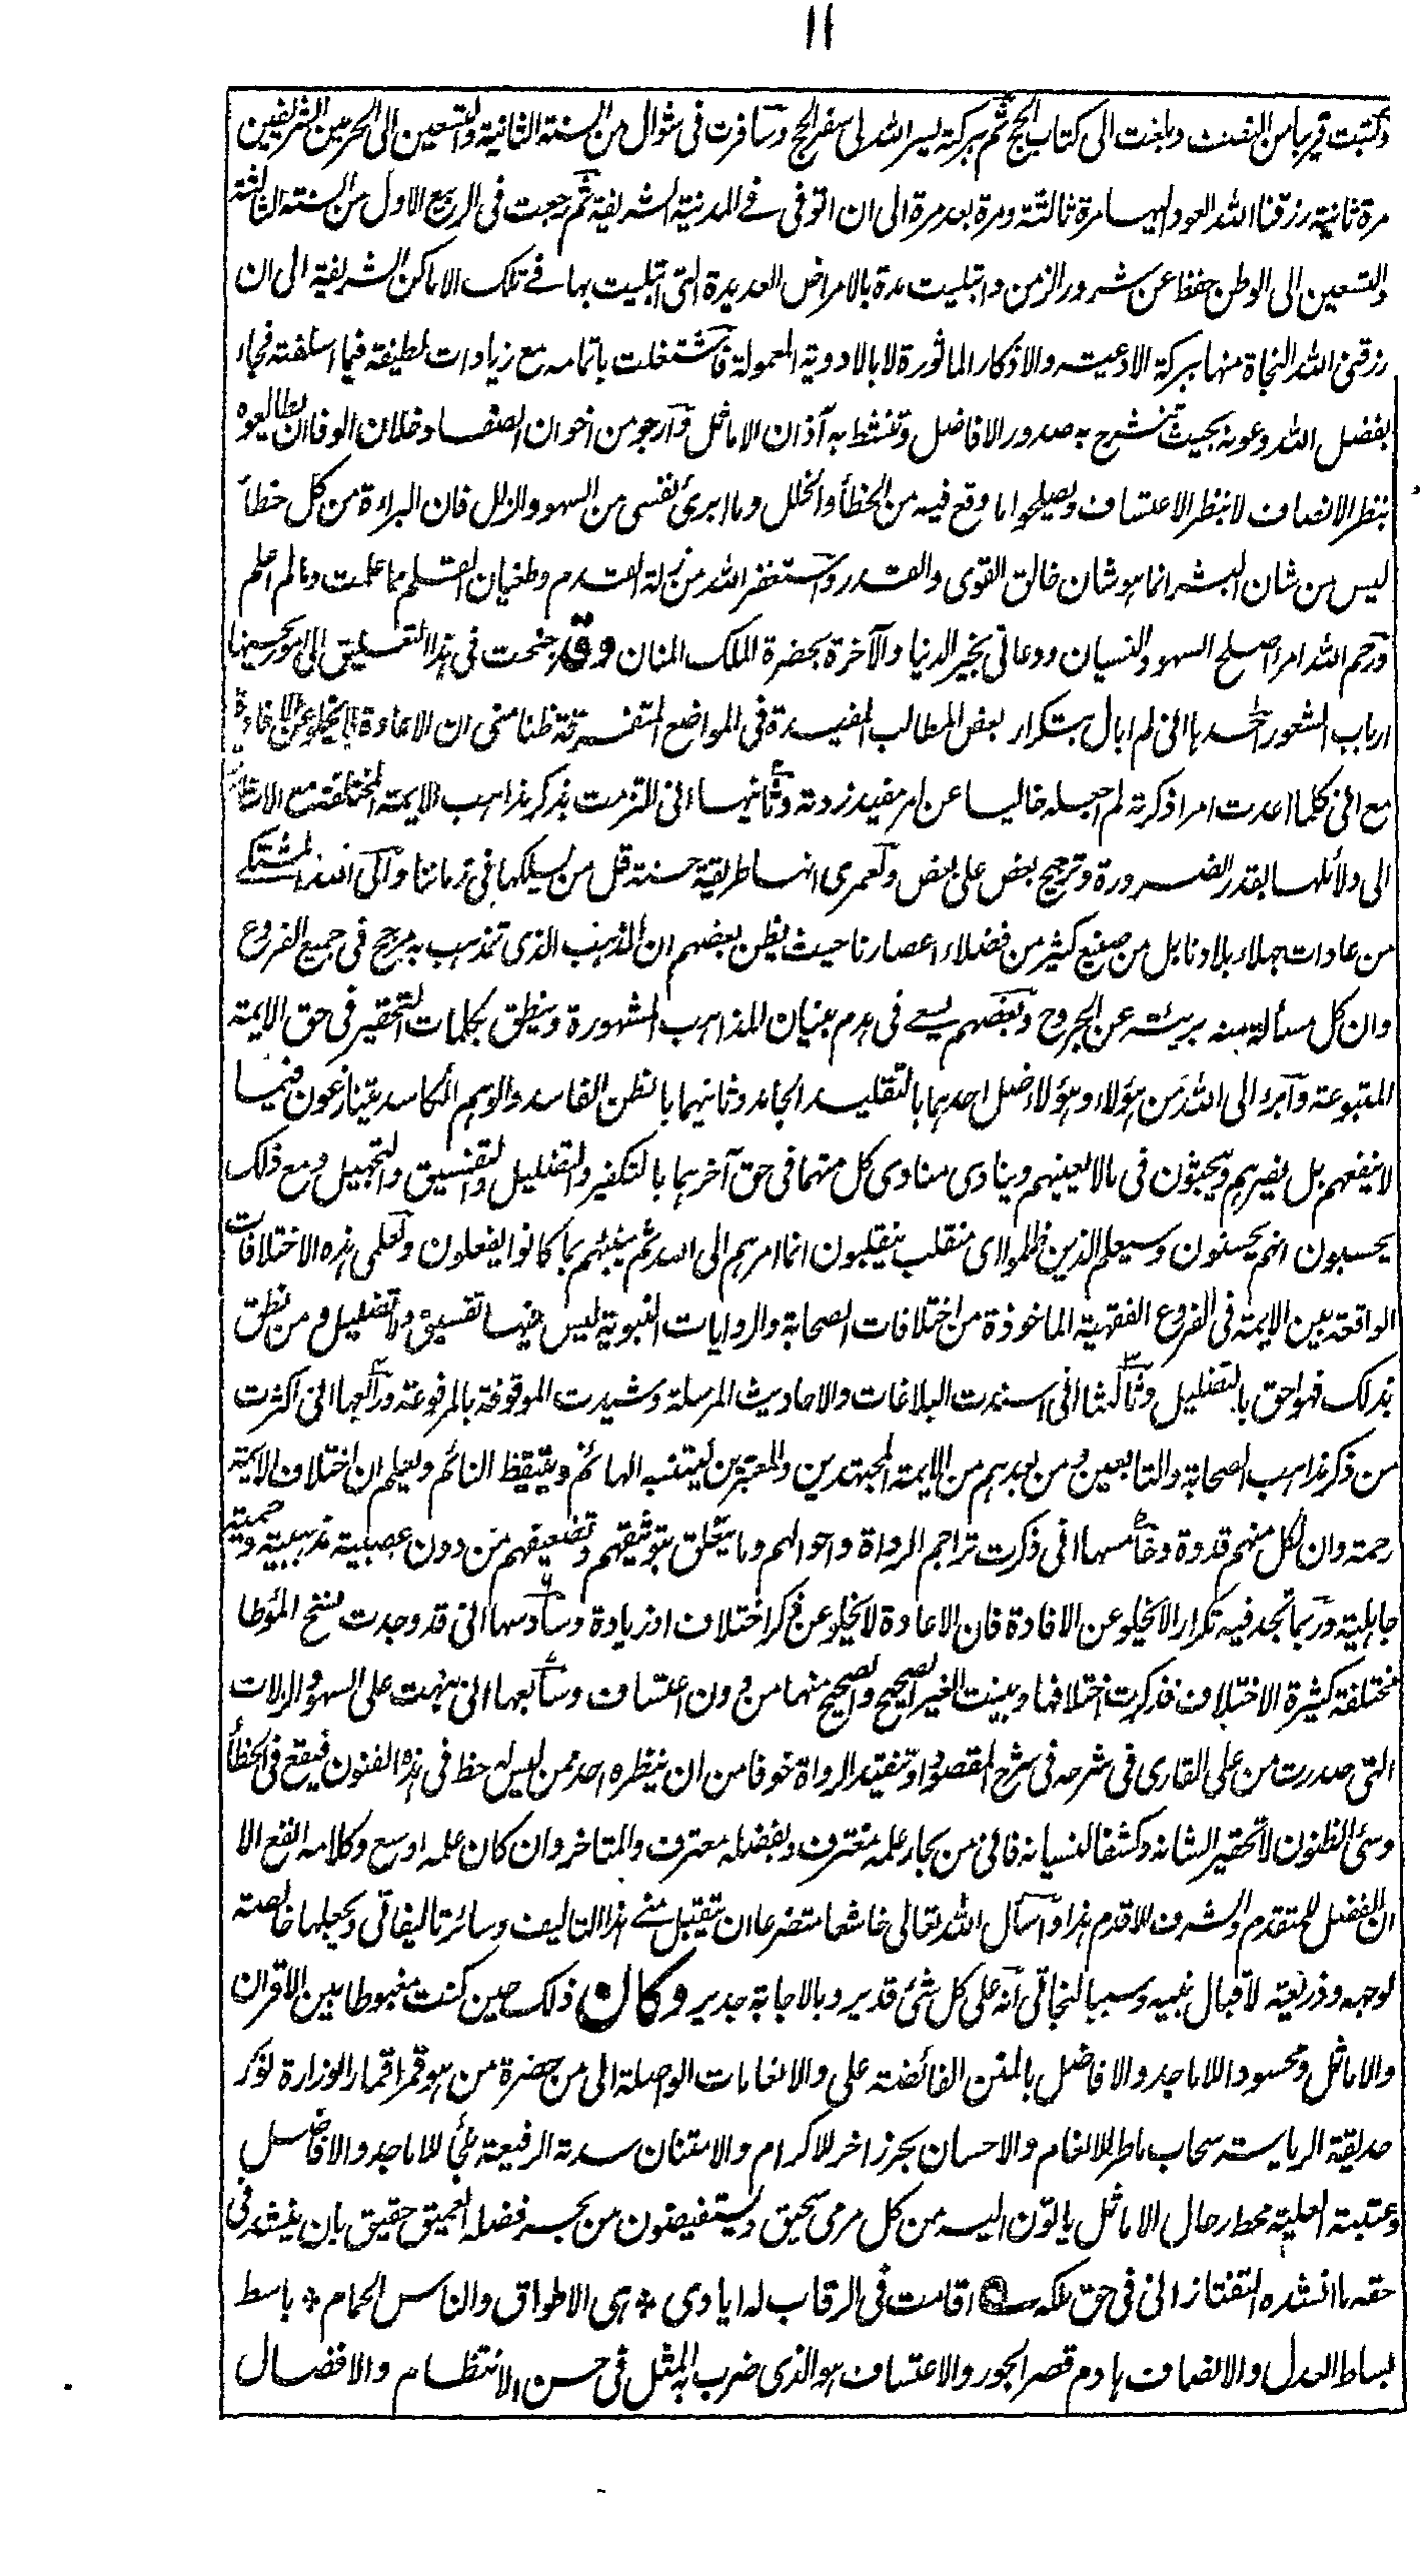 ١١
وكتبت قريبا من النصف وبلغت الى كتاب الحج ثم ببركة يسر الله لى سفر الحج وسافرت فى شوال من السنة الثانية والتسعين الى الحرمين الشريفين
مرة ثانية رزقنا الله العود اليهما مرة ثالثة ومرة بعد مرة الى ان اتوفى فى المدينة الشريفة ثم رجعت فى الربيع الاول من السنة الثالثة
والتسعين الى الوطن حفظ عن شرور الزمن وابتليت مدة بالامراض العديدة التى ابتليت بها فى تلك الاماكن الشريفة الى ان
رزقنى الله النجاة منها ببركة الادعية والاذكار الماثورة لا بالادوية المعمولة فاشتغلت باتمامه مع زيادات لطيفة فيما اسلفته فجاء
بفضل الله وعونه بحيث تنشرح به صدور الافاضل وتنشط به آذان الاماثل وارجو من اخوان الصفا وخلان الوفا ان يطالعوه
بنظر الانصاف لا بنظر الاعتساف ويصلحوا ما وقع فيه من الخطأ والخلل وما ابرئ نفسى من السهو والزلل فان البراءة من كل خطأ
ليس من شان البشر انما هو شان خالق القوى والقدر واستغفر الله من زلة القدم وطغيان القلم مما علمت وما لم اعلم
ورحم الله امرا اصلح السهو والنسيان ودعا لى بخير الدنيا والآخرة بحضرة الملك المنان وقد جنحت فى هذا التعليق الى امور يحسنها
ارباب الشعور احدها انى لم ابال بتكرار بعض المطالب المفيدة فى المواضع المتفرقة ظنا منى ان الاعادة لا يخلو عن الافادة
مع انى كلما اعدت امرا ذكرته لم اجعله خاليا عن امر مفيد زدته وثانيها انى التزمت بذكر مذاهب الايمة المختلفة مع الاشارة
الى دلائلها بقدر الضرورة وترجيح بعض على بعض ولعمرى انها طريقة حسنة قل من يسلكها فى زماننا والى الله المشتكى
من عادات جهلاء بلادنا بل من صنيع كثير من فضلاء اعصارنا حيث يظن بعضهم ان المذهب الذى تمذهب به مرجح فى جميع الفروع
وان كل مسألة منه بريئة عن الجروح وبعضهم يسعى فى هدم بنيان المذاهب المشهورة وينطق بكلمات التحقير فى حق الايمة
المتبوعة وابرء الى الله من هؤلاء وهؤلاء ضل احدهما بالتقليد الجامد وثانيهما بالظن الفاسد والوهم الكاسد يتنازعون فيما
لا ينفعهم بل يضرهم ويبحثون فى ما لا يعنيهم وينادى منادى كل منهما فى حق آخرهما بالتكفير والتضليل والتفسيق والتجهيل ومع ذلك
يحسبون انهم يحسنون وسيعلم الذين ظلموا اى منقلب ينقلبون انما امرهم الى الله ثم ينبئهم بما كانوا يفعلون ولعلمى هذه الاختلافات
الواقعة بين الايمة فى الفروع الفقهية الماخوذة من اختلافات الصحابة والروايات النبوية ليس فيها تفسيق ولا تضليل ومن نطق
بذلك فهو احق بالتضليل وثالثها انى اسندت البلاغات والاحاديث المرسلة وشيدت الموقوفة بالمرفوعة ورابعها انى اكثرت
من ذكر مذاهب الصحابة والتابعين ومن بعدهم من الايمة المجتهدين والمعتبرين ليتنبه الهائم ويتيقظ النائم ويعلم ان اختلاف الايمة
رحمة وان لكل منهم قدوة وخامسها انى ذكرت تراجم الرواة واحوالهم وما يتعلق بتوثيقهم وتضعيفهم من دون عصبية مذهبية وحمية
جاهلية وربما تجد فيه تكرارا لا يخلو عن الافادة فان الاعادة لا يخلو عن ذكر اختلاف او زيادة وسادسها انى قد وجدت نسخ الموطا
مختلفة كثيرة الاختلاف فذكرت اختلافها وبينت الغير الصحيح والصحيح منها من دون اعتساف وسابعها انى نبهت على السهو والزلات
التى صدرت من على القارى فى شرحه فى شرح المقصود او تنقيد الرواة خوفا من ان ينظره احد ممن ليس له حظ فى هذه الفنون فيقع فى الخطأ
وسئ الظنون لا تحقيرا لشانه وكشفا لنسيانه فانى من بحار علمه مغترف وبفضله معترف والمتاخر وان كان علمه اوسع وكلامه انفع الا
ان الفضل للمتقدم والشرف للاقدم هذا واسال الله تعالى خاشعا متضرعا ان يتقبل منى هذا التاليف وسائر تاليفاتى ويجعلها خالصة
لوجهه وذريعة لاقبال نبيه وسببا لنجاتى انه على كل شئ قدير وبالاجابة جدير وكان ذلك حين كنت مغبوطا بين الاقران
والاماثل ومحسودا للاماجد والافاضل بالمنن الفائضة على والانعامات الواصلة الى من حضرة من هو قمر اقمار الوزارة نور
حديقة الرياسة سحاب ماطر للانعام والاحسان بحر زاخر للاكرام والامتنان سدته الرفيعة ملجأ للاماجد والافاضل
وعتبته العلية محط رحال الاماثل ياتون اليه من كل مرمى سحيق ويستفيضون من بحر فضله العميق حقيق بان ينشد فى
حقه ما انشده التفتازانى فى حق ملكه اقامت فى الرقاب له ايادى * هى الاطواق والناس الحمام * باسط
بساط العدل والانصاف هادم قصر الجور والاعتساف هو الذى ضرب به المثل فى حسن الانتظام والافضال